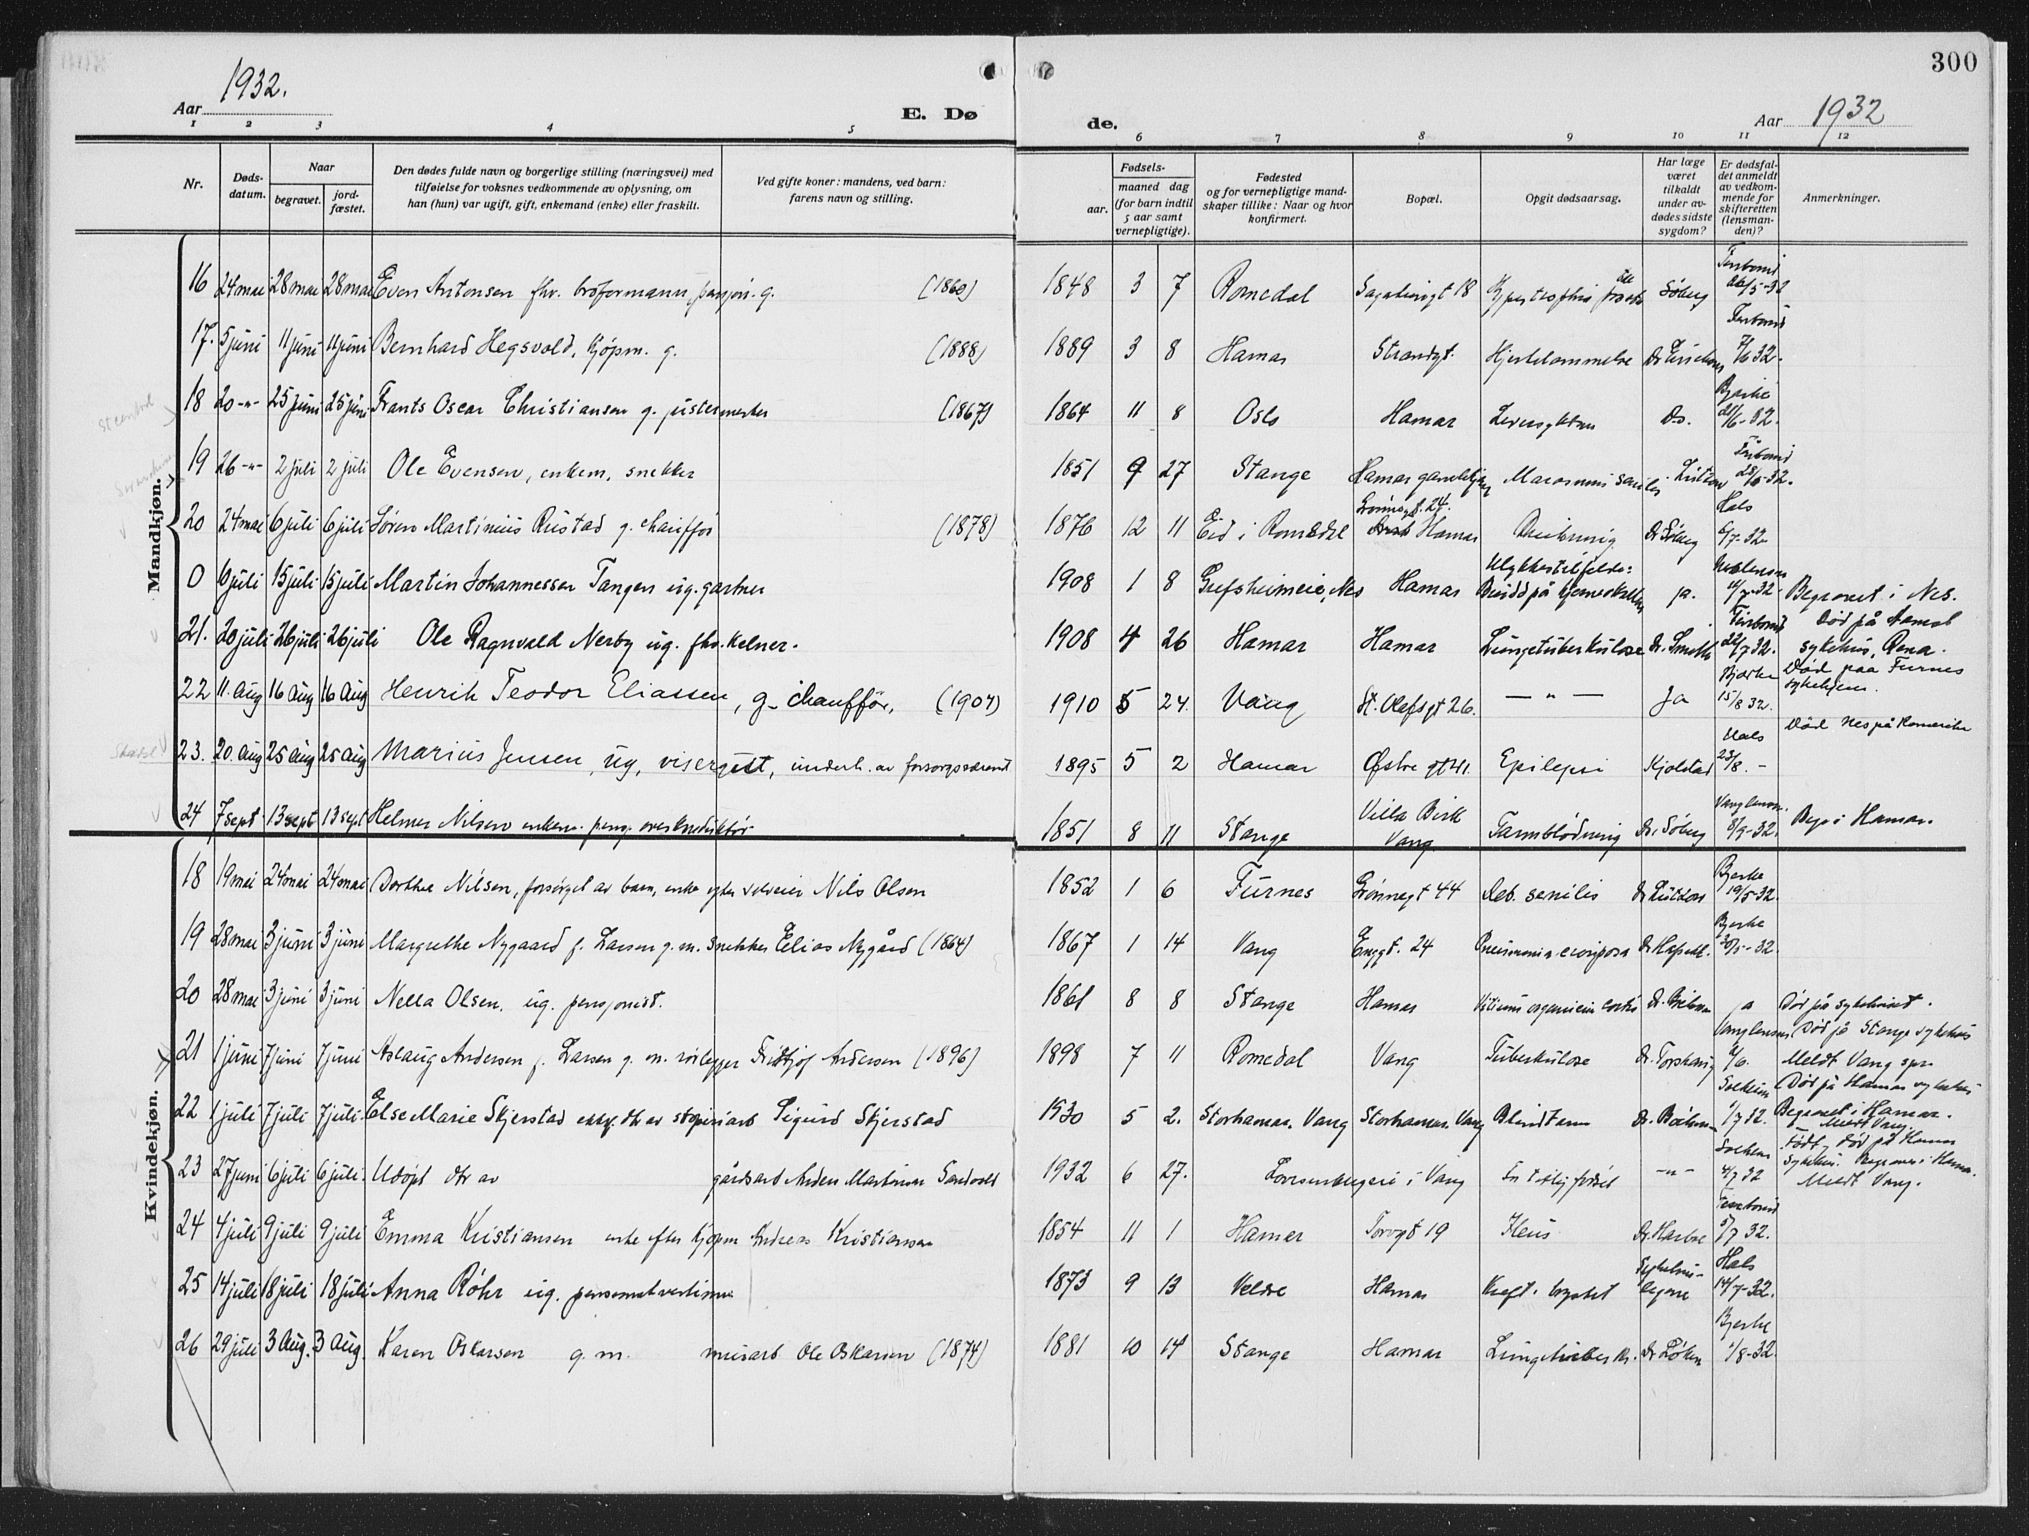 300
Aar 1932.
E. Dø
de.
Aar 1932
1 2 3 4 5 6 7 8 9 10 11 12
Nr.
Døds-
datum.
Naar
begravet.
jord-
fæstet.
Den dødes fulde navn og borgerlige stilling (næringsvei) med
tilføielse for voksnes vedkommende av oplysning, om
han (hun) var ugift, gift, enkemand (enke) eller fraskilt.
Ved gifte koner: mandens, ved barn:
farens navn og stilling.
Fødsels-
aar.
maaned dag
(for barn indtil
5 aar samt
vernepligtige).
Fødested
og for vernepligtige mand-
skaper tillike: Naar og hvor
konfirmert.
Bopæl.
Opgit dødsaarsag.
Har læge
været
tilkaldt
under av-
dødes sidste
sygdom?
Er dødsfal-
det anmeldt
av vedkom-
mende for
skifteretten
(lensman-
den)?
Anmerkninger.
Mandkjøn.
16 24 mai 28 mai 28 mai Even Antonsen fhv. broformann, pensjon. g. (1860) 1848 3 7 Romedal 18 Søberg
17. 5 juni 11 juni 11 juni Bernhard Hegsvold, Kjøpm. g. (1888) 1889 3 8 Hamar Strandgt. Hjertelammelse 7/6 32.
18 20 -"- 25 juni 25 juni Frants Oscar Christiansen g. justermester (1867) 1864 11 8 Oslo Hamar Leversykdom Ds. Bjerke 21/6-32.
19 26 -"- 2 juli 2 juli Ole Evensen, enkem. snekker 1851 9 27 Stange Hamar gamlehjem Marasmus senilis 28/6-32.
20 24 mai 6 juli 6 juli Søren Martinius Rustad g. chauffør (1878) 1876 12 11 Eid i Romedal Grønnegt. 24. Hamar Drukning Dr Søberg Hals 6/7-32
0 6 juli 15 juli 15 juli Martin Johannessen Tangen ug. gartner 1908 1 8 Gufsheimeie, Nes Hamar Ulykkestilfelde: ja. 11/7-32 Begravet i Nes.
21. 20 juli 26 juli 26 juli Ole Ragnvald Nerby ug. fhv. kelner. 1908 4 26 Hamar Hamar Lungetuberkulose Dr. Smith 22/7 32. Død på Aamot
sykehus, Rena.
22 11. aug 16 aug 16 aug Henrik Teodor Eliassen, g. chauffør, (1907) 1910 5 24. Vang St. Olafsgt 26. — " — Ja Bjerke 15/8 32. Død paa Furnes
sykehjem.
23. 20. aug 25 aug 25 aug Marius Jensen, ug, visergutt, underh. av forsorgsvesenet 1895 5 2 Hamar Østre gt 41. Epilepsi Kjolstad Hals 23/8. - Død Nes på Romerike
24 7 sept 13 sept 13 sept Helmer Nilsen enkem. pens. overkonduktør 1851 8 11 Stange Villa Birk
Vang Tarmblødning Dr. Søberg 8/9-32. Begr. i Hamar.
Kvindekjøn.
18 19 mai 24 mai 24 mai Dorthea Nilsen, forsørget av barn, enke efter selveier Nils Olsen 1852 1 6 Furnes Grønnegt 44 Deb. senilis Dr Lützow Bjerke 19/5-32.
19 28 mai 3 juni 3 juni Margrethe Nygaard f. Larsen g. m. snekker Elias Nygård (1864) 1867 1 14 Vang Enggt. 24 Pneumonia crouposa Bjerke 30/5-32.
20 28 mai 3 juni 3 juni Nella Olsen, ug. pensjonist. 1861 8 8 Stange Hamar Vitium organicum cordis ja Død på sykehuset.
21 1 juni 7 juni 7 juni Aslaug Andersen f. Larsen g. m. rørlegger Fridtjof Andersen (1896) 1898 7 11 Romedal Vang Tuberkulose Dr. Torshaug Død på Stange sykehus
Meldt Vang spr
22 1 juli 7 juli 7 juli Else Marie Skjerstad Sigurd Skjerstad 1930 5 2. Storhamar. Vang Storhamar. Vang Blindtarm 1/7 32. Død på Hamar sykehus
Begravet i Hamar.
Meldt Vang.
23 27 juni 6 juli 6 juli. Udøpt dtr av gårdsarb Anders Martinius Sandvold 1932 6 27. Lovisenbergeie i Vang For tidlig fødsel -"- 4/7 32 Født, død på Hamar
sykehus. Begravet i Hamar.
Meldt Vang.
24 4 juli 9 juli 9 juli Emma Kristiansen enke efter kjøpm Andreas Kristiansen 1854 11 1 Hamar Torvgt 19 Ileus Dr. Harboe 5/7 32.
25 14 juli 18 juli 18 juli Anna Röhr ug. pensionatvertinne 1873 9 13 Veldre Hamar Kreft i brystet Hals 14/7-32.
26 29 juli 3 Aug. 3 Aug. Karen Oskarsen g.m. murarb Ole Oskarsen (1874) 1881 10 14 Stange Hamar Lungetuberk. Dr Løken Bjerke 1/8-32.